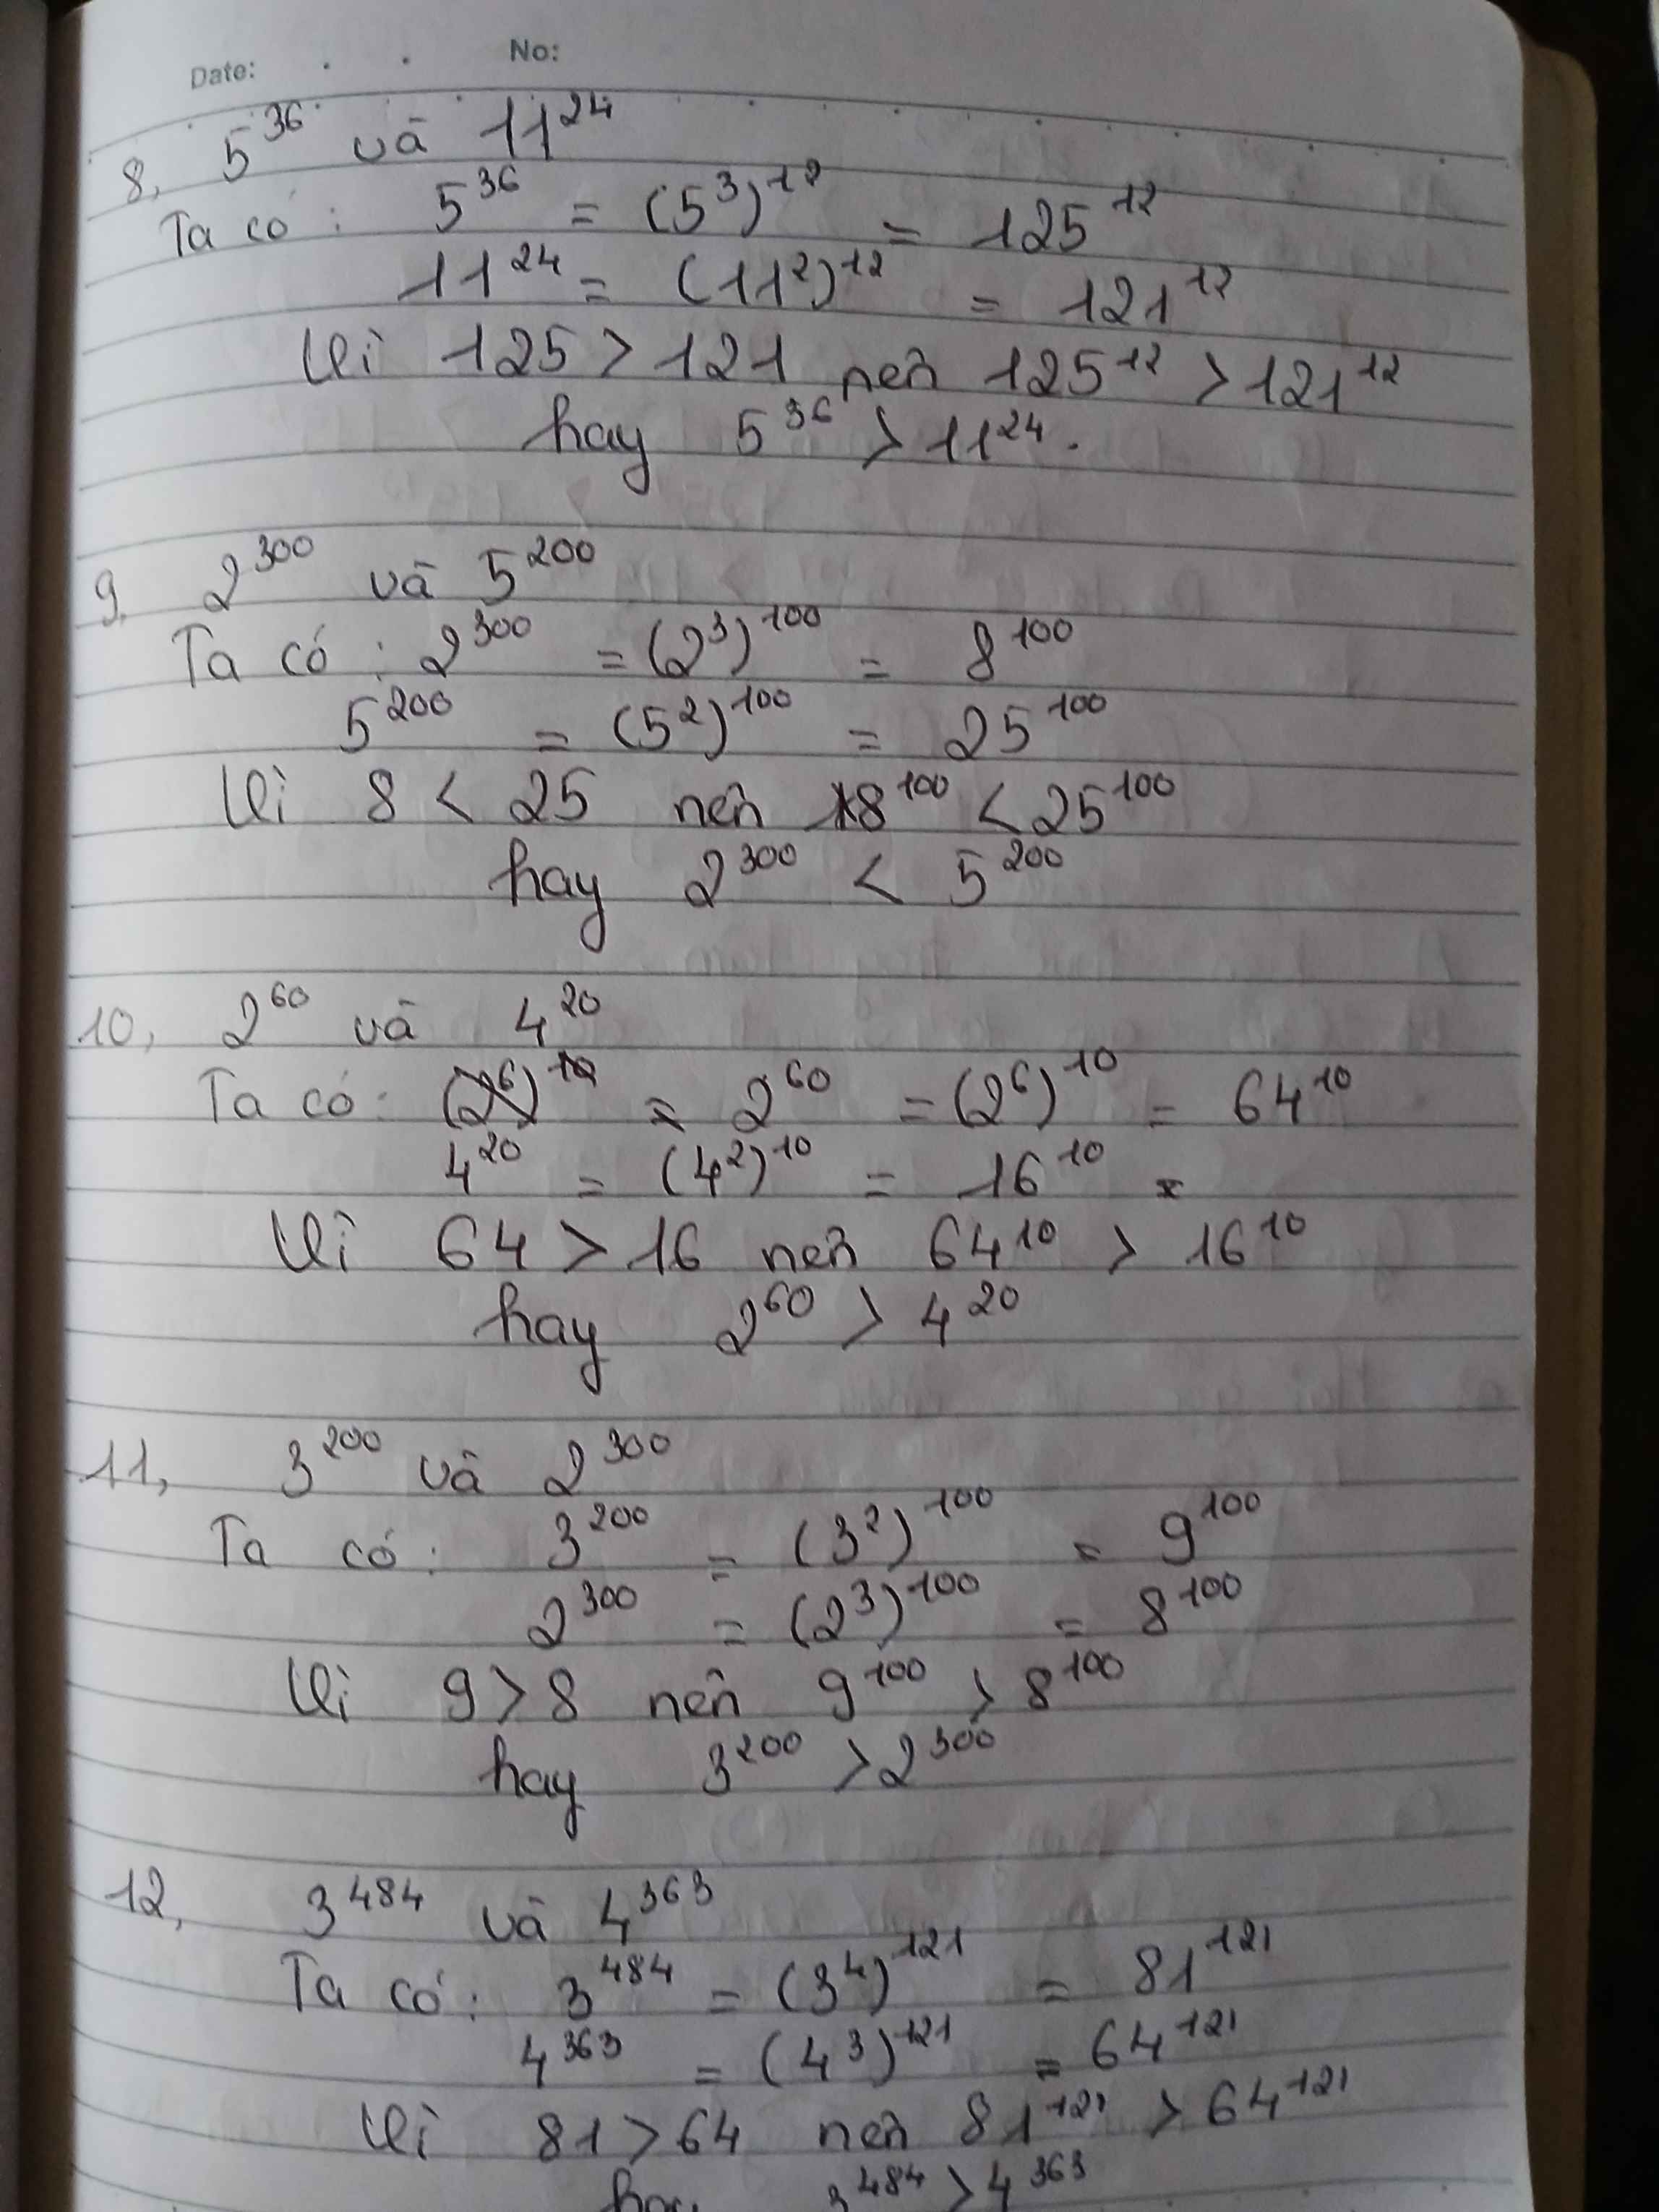 Date: . . No:
8, 5^36 và 11^24
Ta có: 5^36 = (5^3)^12 = 125^12
11^24 = (11^2)^12 = 121^12
Vì 125 > 121 nên 125^12 > 121^12
hay 5^36 > 11^24.
9, 2^300 và 5^200
Ta có: 2^300 = (2^3)^100 = 8^100
5^200 = (5^2)^100 = 25^100
Vì 8 < 25 nên 8^100 < 25^100
hay 2^300 < 5^200
10, 2^60 và 4^20
Ta có: 2^60 = (2^6)^10 = 64^10
4^20 = (4^2)^10 = 16^10
Vì 64 > 16 nên 64^10 > 16^10
hay 2^60 > 4^20
11, 3^200 và 2^300
Ta có: 3^200 = (3^2)^100 = 9^100
2^300 = (2^3)^100 = 8^100
Vì 9 > 8 nên 9^100 > 8^100
hay 3^200 > 2^300
12, 3^484 và 4^363
Ta có: 3^484 = (3^4)^121 = 81^121
4^363 = (4^3)^121 = 64^121
Vì 81 > 64 nên 81^121 > 64^121
hay 3^484 > 4^363